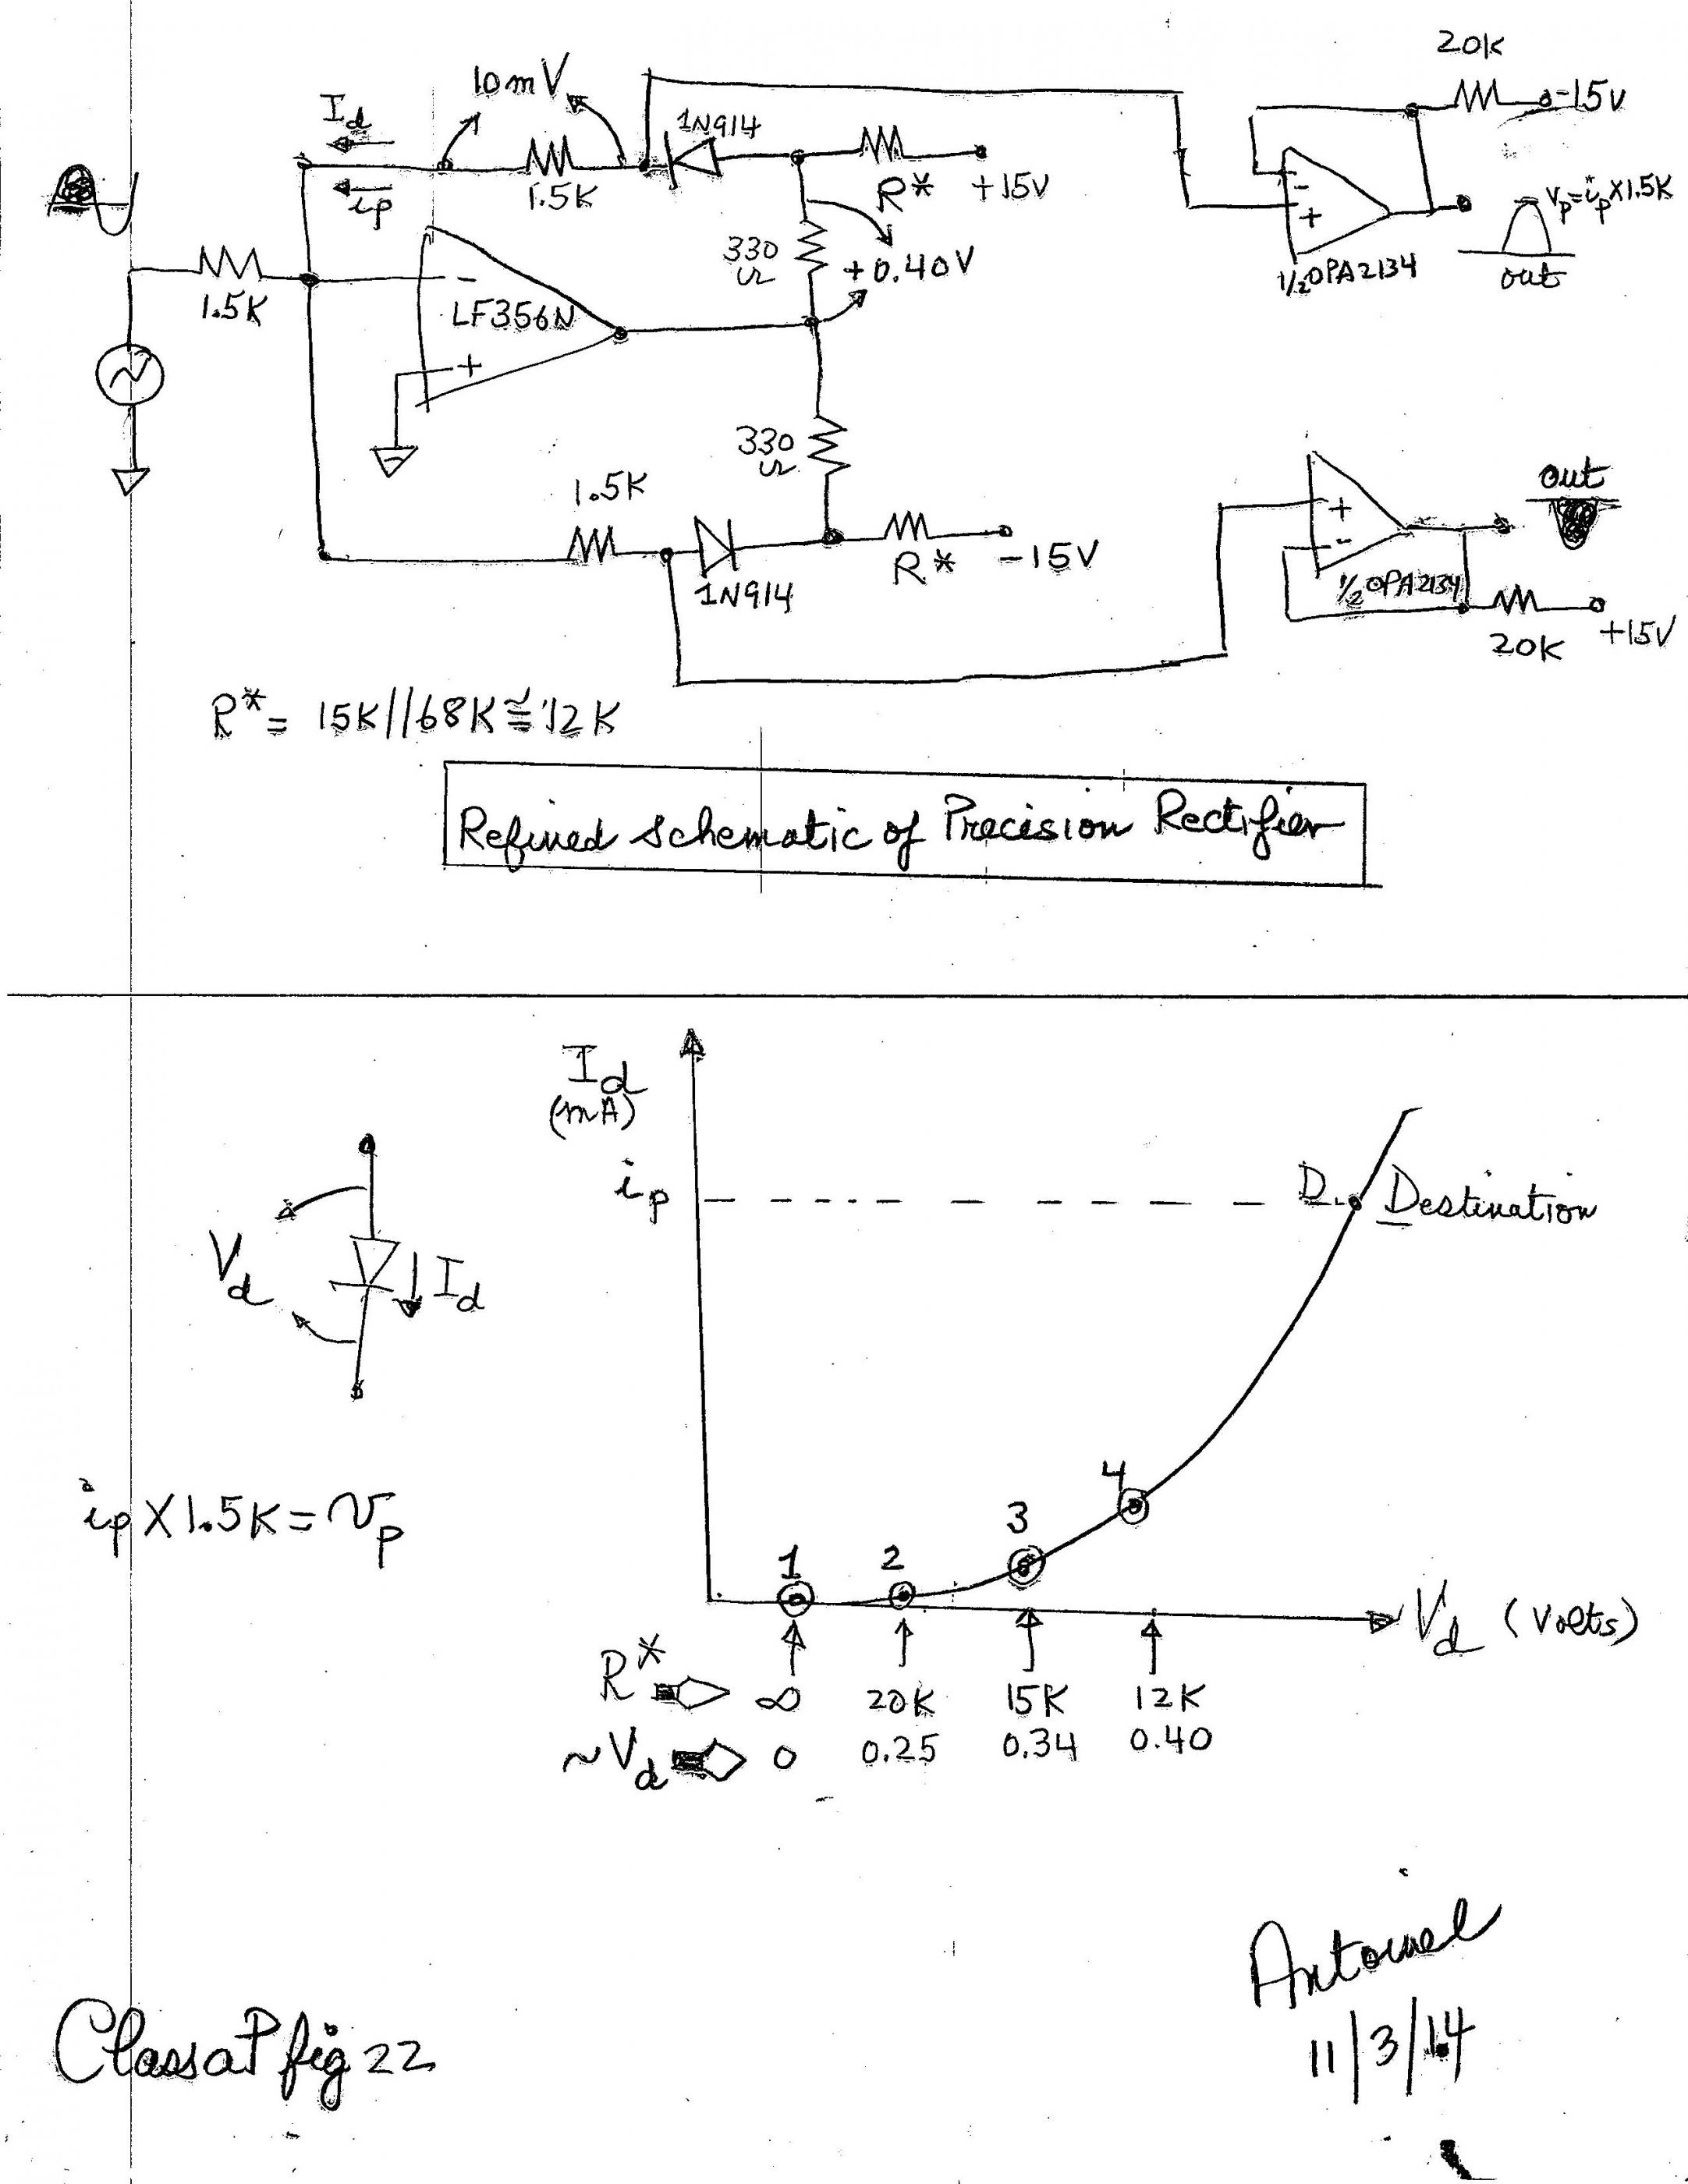 20K
-15V
10mV
Id
ip
1.5K
1N914
R*
+15V
vp=ip×1.5K
330
Ω
+0.40V
1/2OPA2134
out
1.5K
LF356N
-
+
-
+
330
Ω
1.5K
1N914
R*
-15V
+
-
out
1/2OPA2134
20K
+15V
R*= 15K//68K≅12K
Refined Schematic of Precision Rectifier
Id
(mA)
ip
D. Destination
Vd
Id
ip×1.5K=vp
1
2
3
4
Vd (Volts)
R* ∞ 20K 15K 12K
~Vd 0 0.25 0.34 0.40
Antoinel
11/3/14
ClassaP fig 22